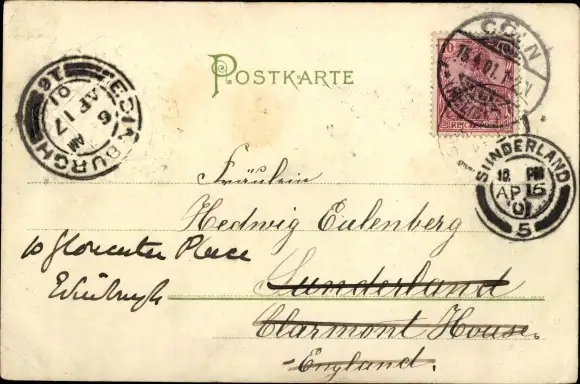 POSTKARTE
CÖLN
15.4.01.
10
REICHSPOST
EDINBURGH
6 AM
AP 17
01
SUNDERLAND
PM
AP 15
01
5
Fräulein
Hedwig Eulenberg
Sunderland
Clarmont House.
England.
10 Gloucester Place
Edinburgh